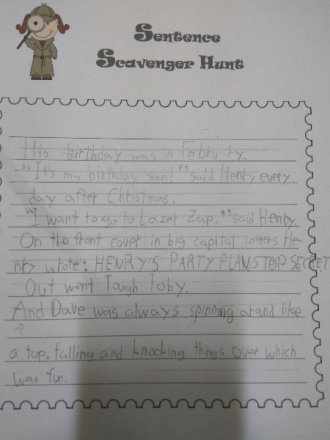 Sentence
Scavenger Hunt
His birthday was in February.
"It's my birthday soon!" said Henry every
day after Christmas.
"I want to go to Lazer Zap," said Henry.
On the front cover in big capital letters He
nry wrote: HENRY'S PARTY PLANS TOP SECRET
Out went Tough Toby.
And Dave was always spinning around like
a top, falling and knocking things over which
was fun.